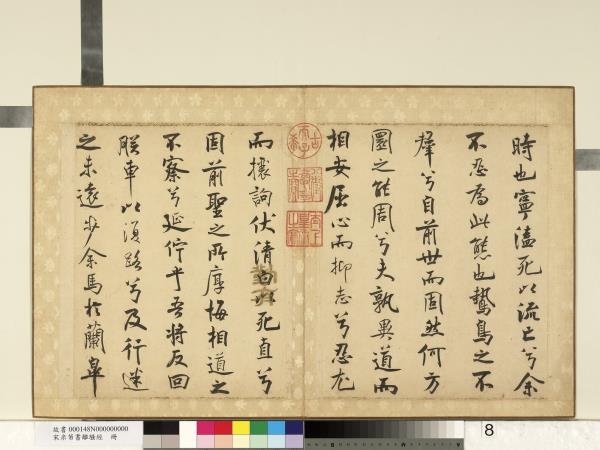 時也寧溘死以流亡兮余
不忍為此態也鷙鳥之不
羣兮自前世而固然何方
圜之能周兮夫孰異道而
相安屈心而抑志兮忍尤
而攘詢伏清白以死直兮
固前聖之所厚悔相道之
不察兮延佇乎吾將反回
朕車以復路兮及行迷
之未遠步余馬於蘭皋
故書 000148N000000000
宋米芾書離騷經 冊
8